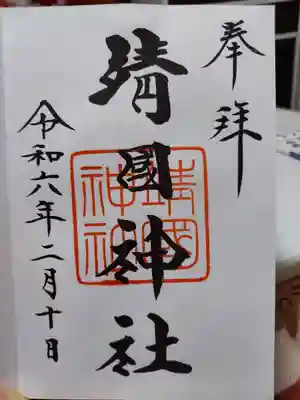 奉拝
靖國神社
靖國神社
令和六年二月十日